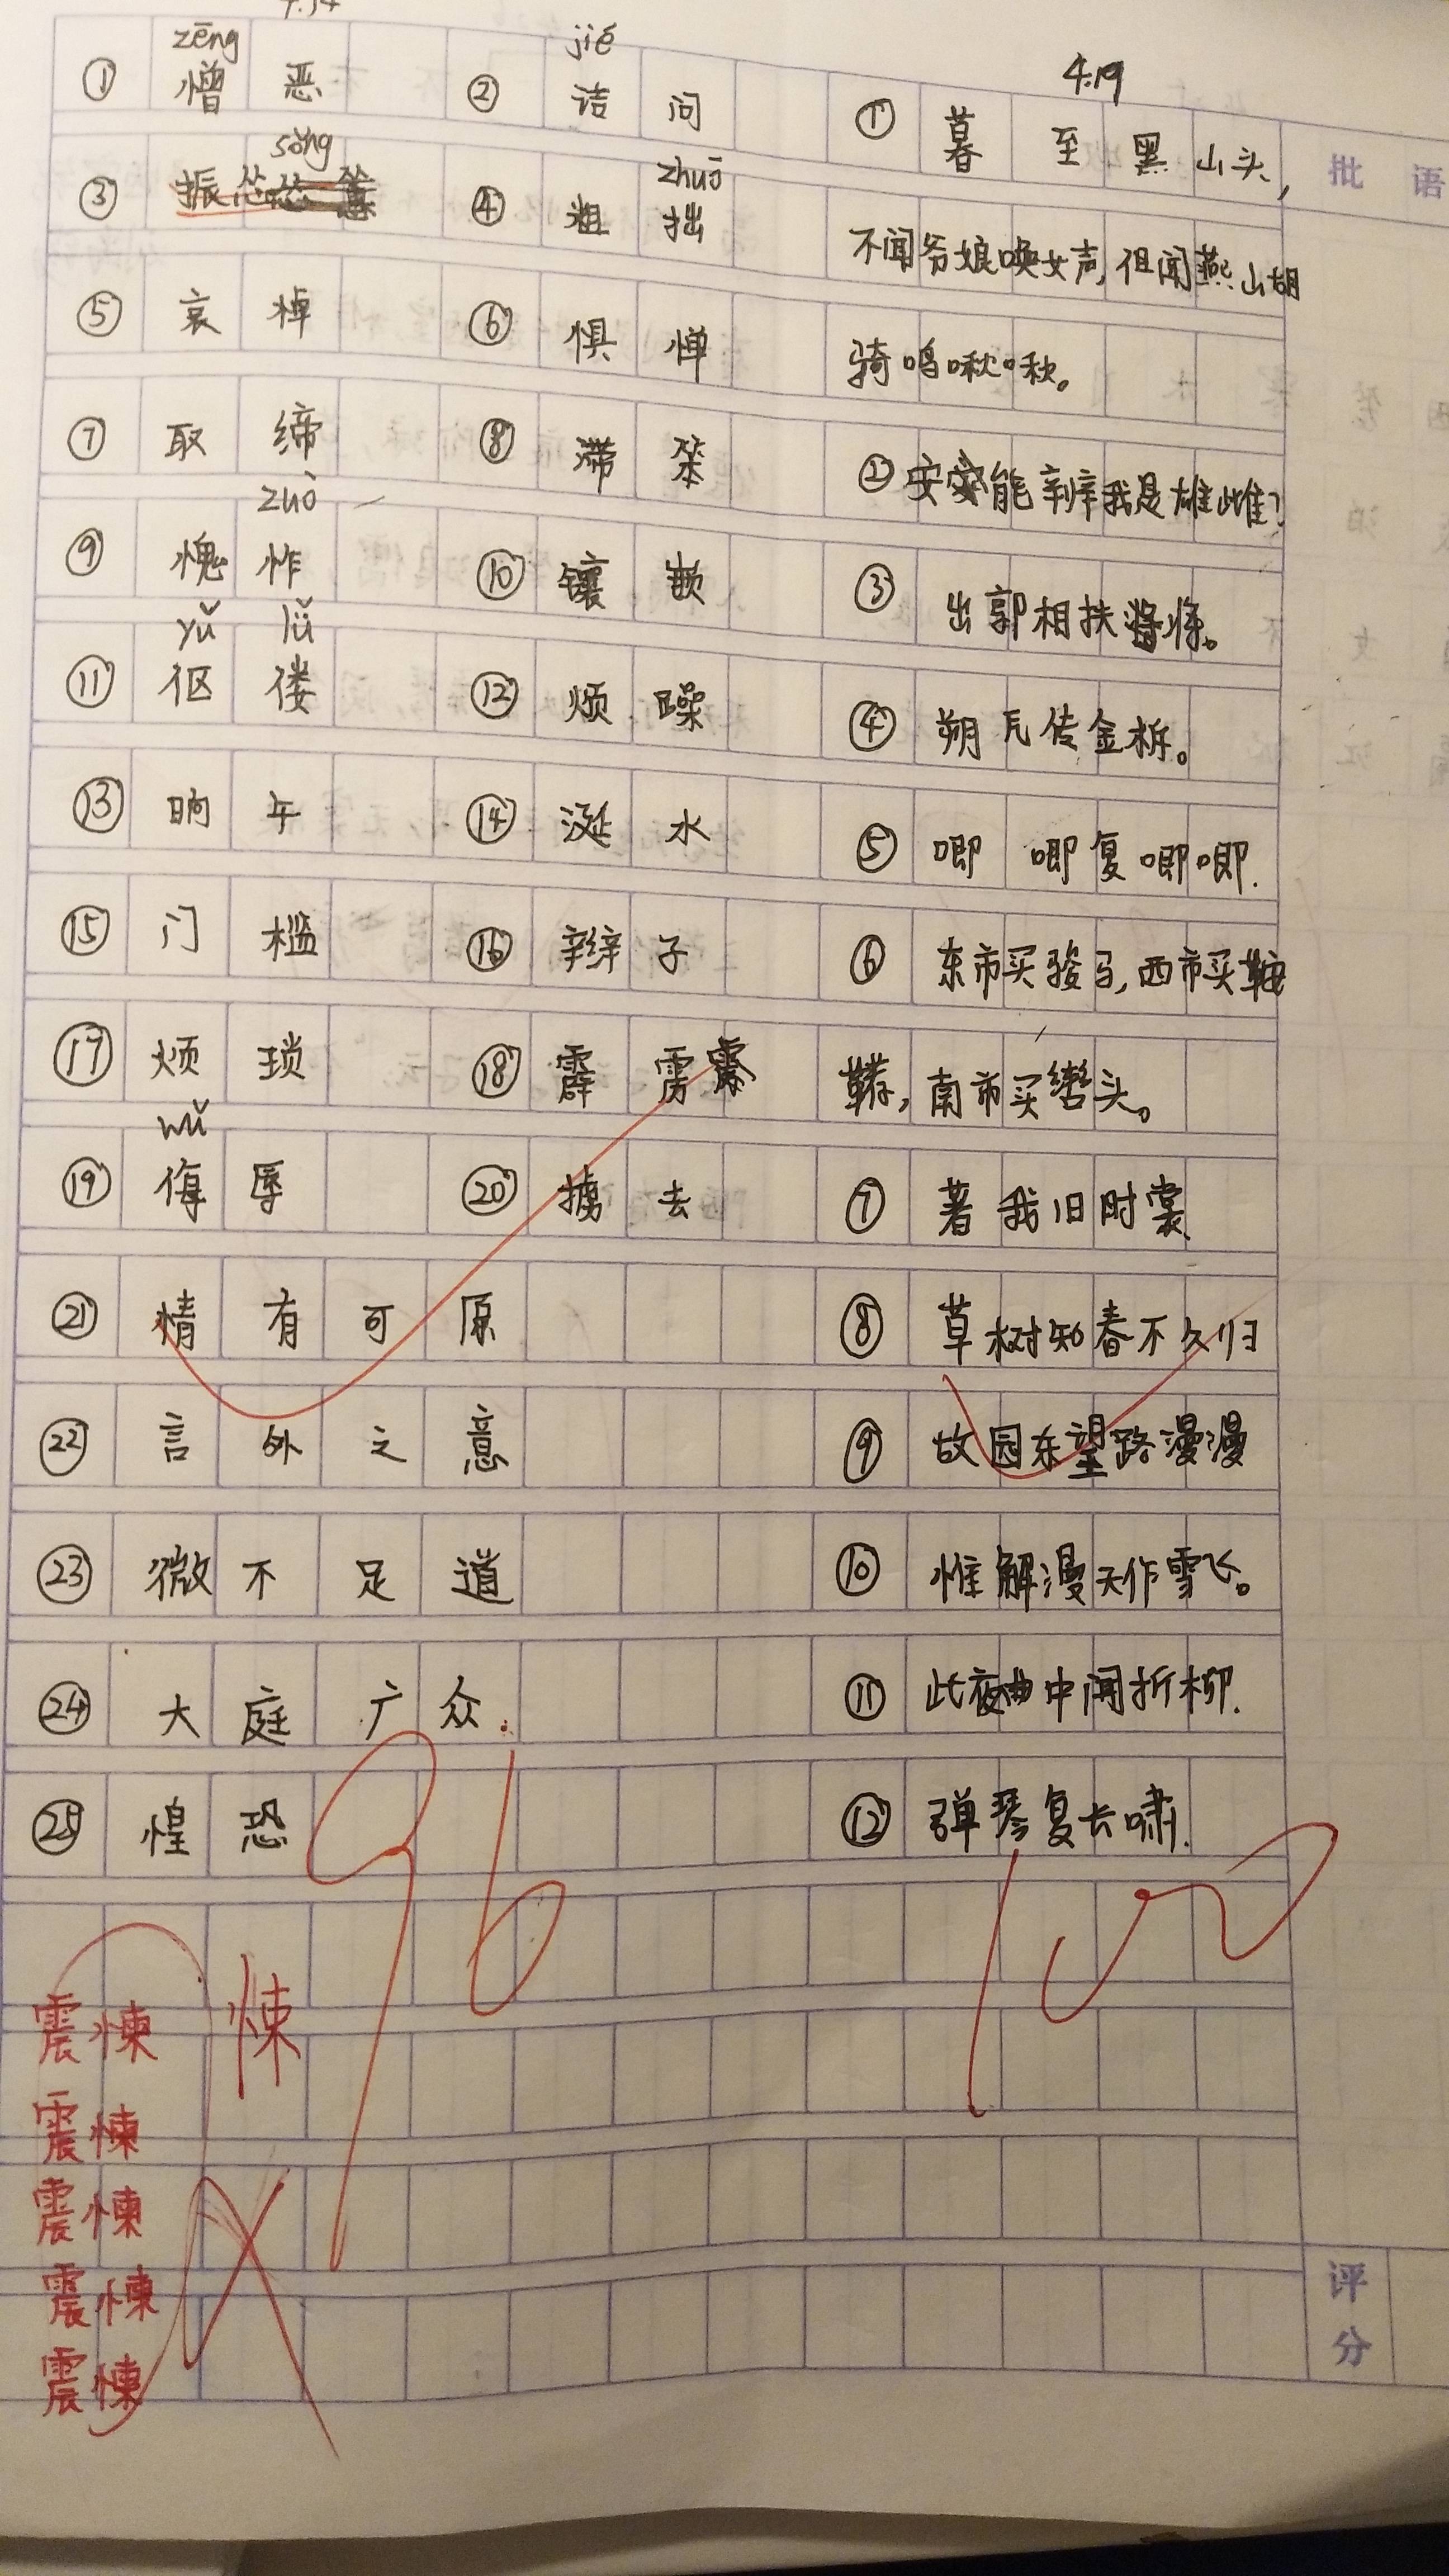 zēng
① 憎 恶
jié
② 诘 问
sǒng
③ 振怂
zhuō
④ 粗 拙
⑤ 哀 悼
⑥ 惧 惮
⑦ 取 缔
⑧ 滞 笨
zuò
⑨ 愧 怍
⑩ 镶 嵌
yǔ lǚ
⑪ 伛 偻
⑫ 烦 躁
⑬ 晌 午
⑭ 涎 水
⑮ 门 槛
⑯ 辫 子
⑰ 烦 琐
⑱ 霹 雳
wǔ
⑲ 侮 辱
⑳ 掳 去
㉑ 情 有 可 原
㉒ 言 外 之 意
㉓ 微 不 足 道
㉔ 大 庭 广 众.
㉕ 惶 恐
96
悚
震悚
震悚
震悚
震悚
震悚
4.19
① 暮 至 黑 山头,
不闻爷娘唤女声,但闻燕山胡
骑鸣啾啾。
②安能辨我是雄雌?
③ 出郭相扶将。
④ 朔气传金柝。
⑤ 唧 唧复唧唧.
⑥ 东市买骏马,西市买鞍
鞯,南市买辔头。
⑦ 著我旧时裳
⑧ 草树知春不久归
⑨ 故园东望路漫漫
⑩ 惟解漫天作雪飞。
⑪ 此夜曲中闻折柳.
⑫ 弹琴复长啸.
100
批 语
评
分